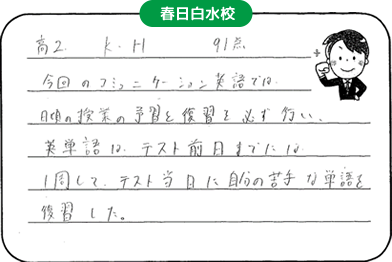 春日白水校
高2. K.H 91点
今回のコミュニケーション英語では.
日頃の授業の予習と復習を必ず行い、
英単語は.テスト前日までには
1周して、テスト当日に自分の苦手な単語を
復習した。